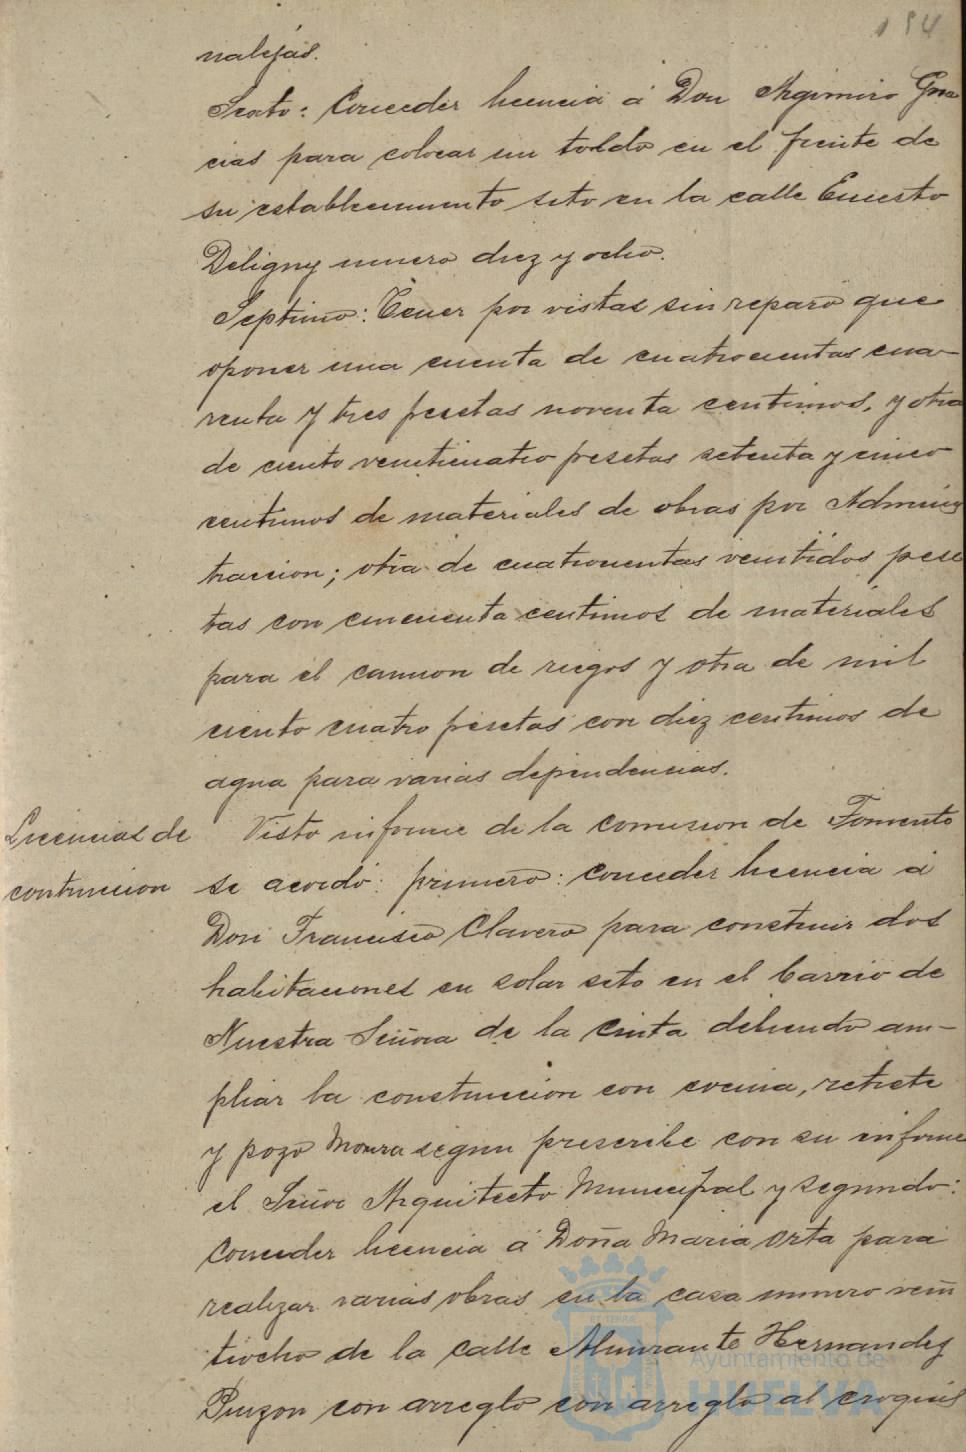 194
nalejas.
Sexto: Conceder licencia á Don Argimiro Gra
cias para colocar un toldo en el frente de
su establecimiento sito en la calle Ernesto
Deligny numero diez y ocho.
Septimo: Tener por vistas sin reparo que
oponer una cuenta de cuatrocientas cua-
renta y tres pesetas noventa centimos, y otra
de ciento veinticuatro pesetas setenta y cinco
centimos de materiales de obras por Adminis
tracion; otra de cuatrocientas veintidos pese
tas con cincuenta centimos de materiales
para el camion de riegos y otra de mil
ciento cuatro pesetas con diez centimos de
agua para varias dependencias.
Licencias de
contruccion
Visto informe de la comision de Fomento
se acordó: primero: conceder licencia á
Don Francisco Clavero para construir dos
habitaciones en solar sito en el barrio de
Nuestra Señora de la Cinta debiendo am-
pliar la construccion con cocina, retrete
y pozo Moura segun prescribe con su informe
el Señor Arquitecto Municipal y segundo:
conceder licencia á Doña Maria Orta para
realizar varias obras en la casa numero vein
tiocho de la calle Almirante Hernandez
Pinzon con arreglo con arreglo al croquis
Ayuntamiento de
HUELVA